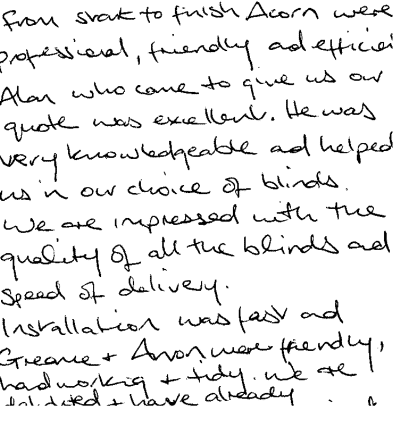 From start to finish Acorn were
professional, friendly and efficient
Alan who came to give us our
quote was excellent. He was
very knowledgeable and helped
us in our choice of blinds.
We are impressed with the
quality of all the blinds and
speed of delivery.
Installation was fast and
Graeme + were friendly,
hardworking + tidy. We are
delighted + have already